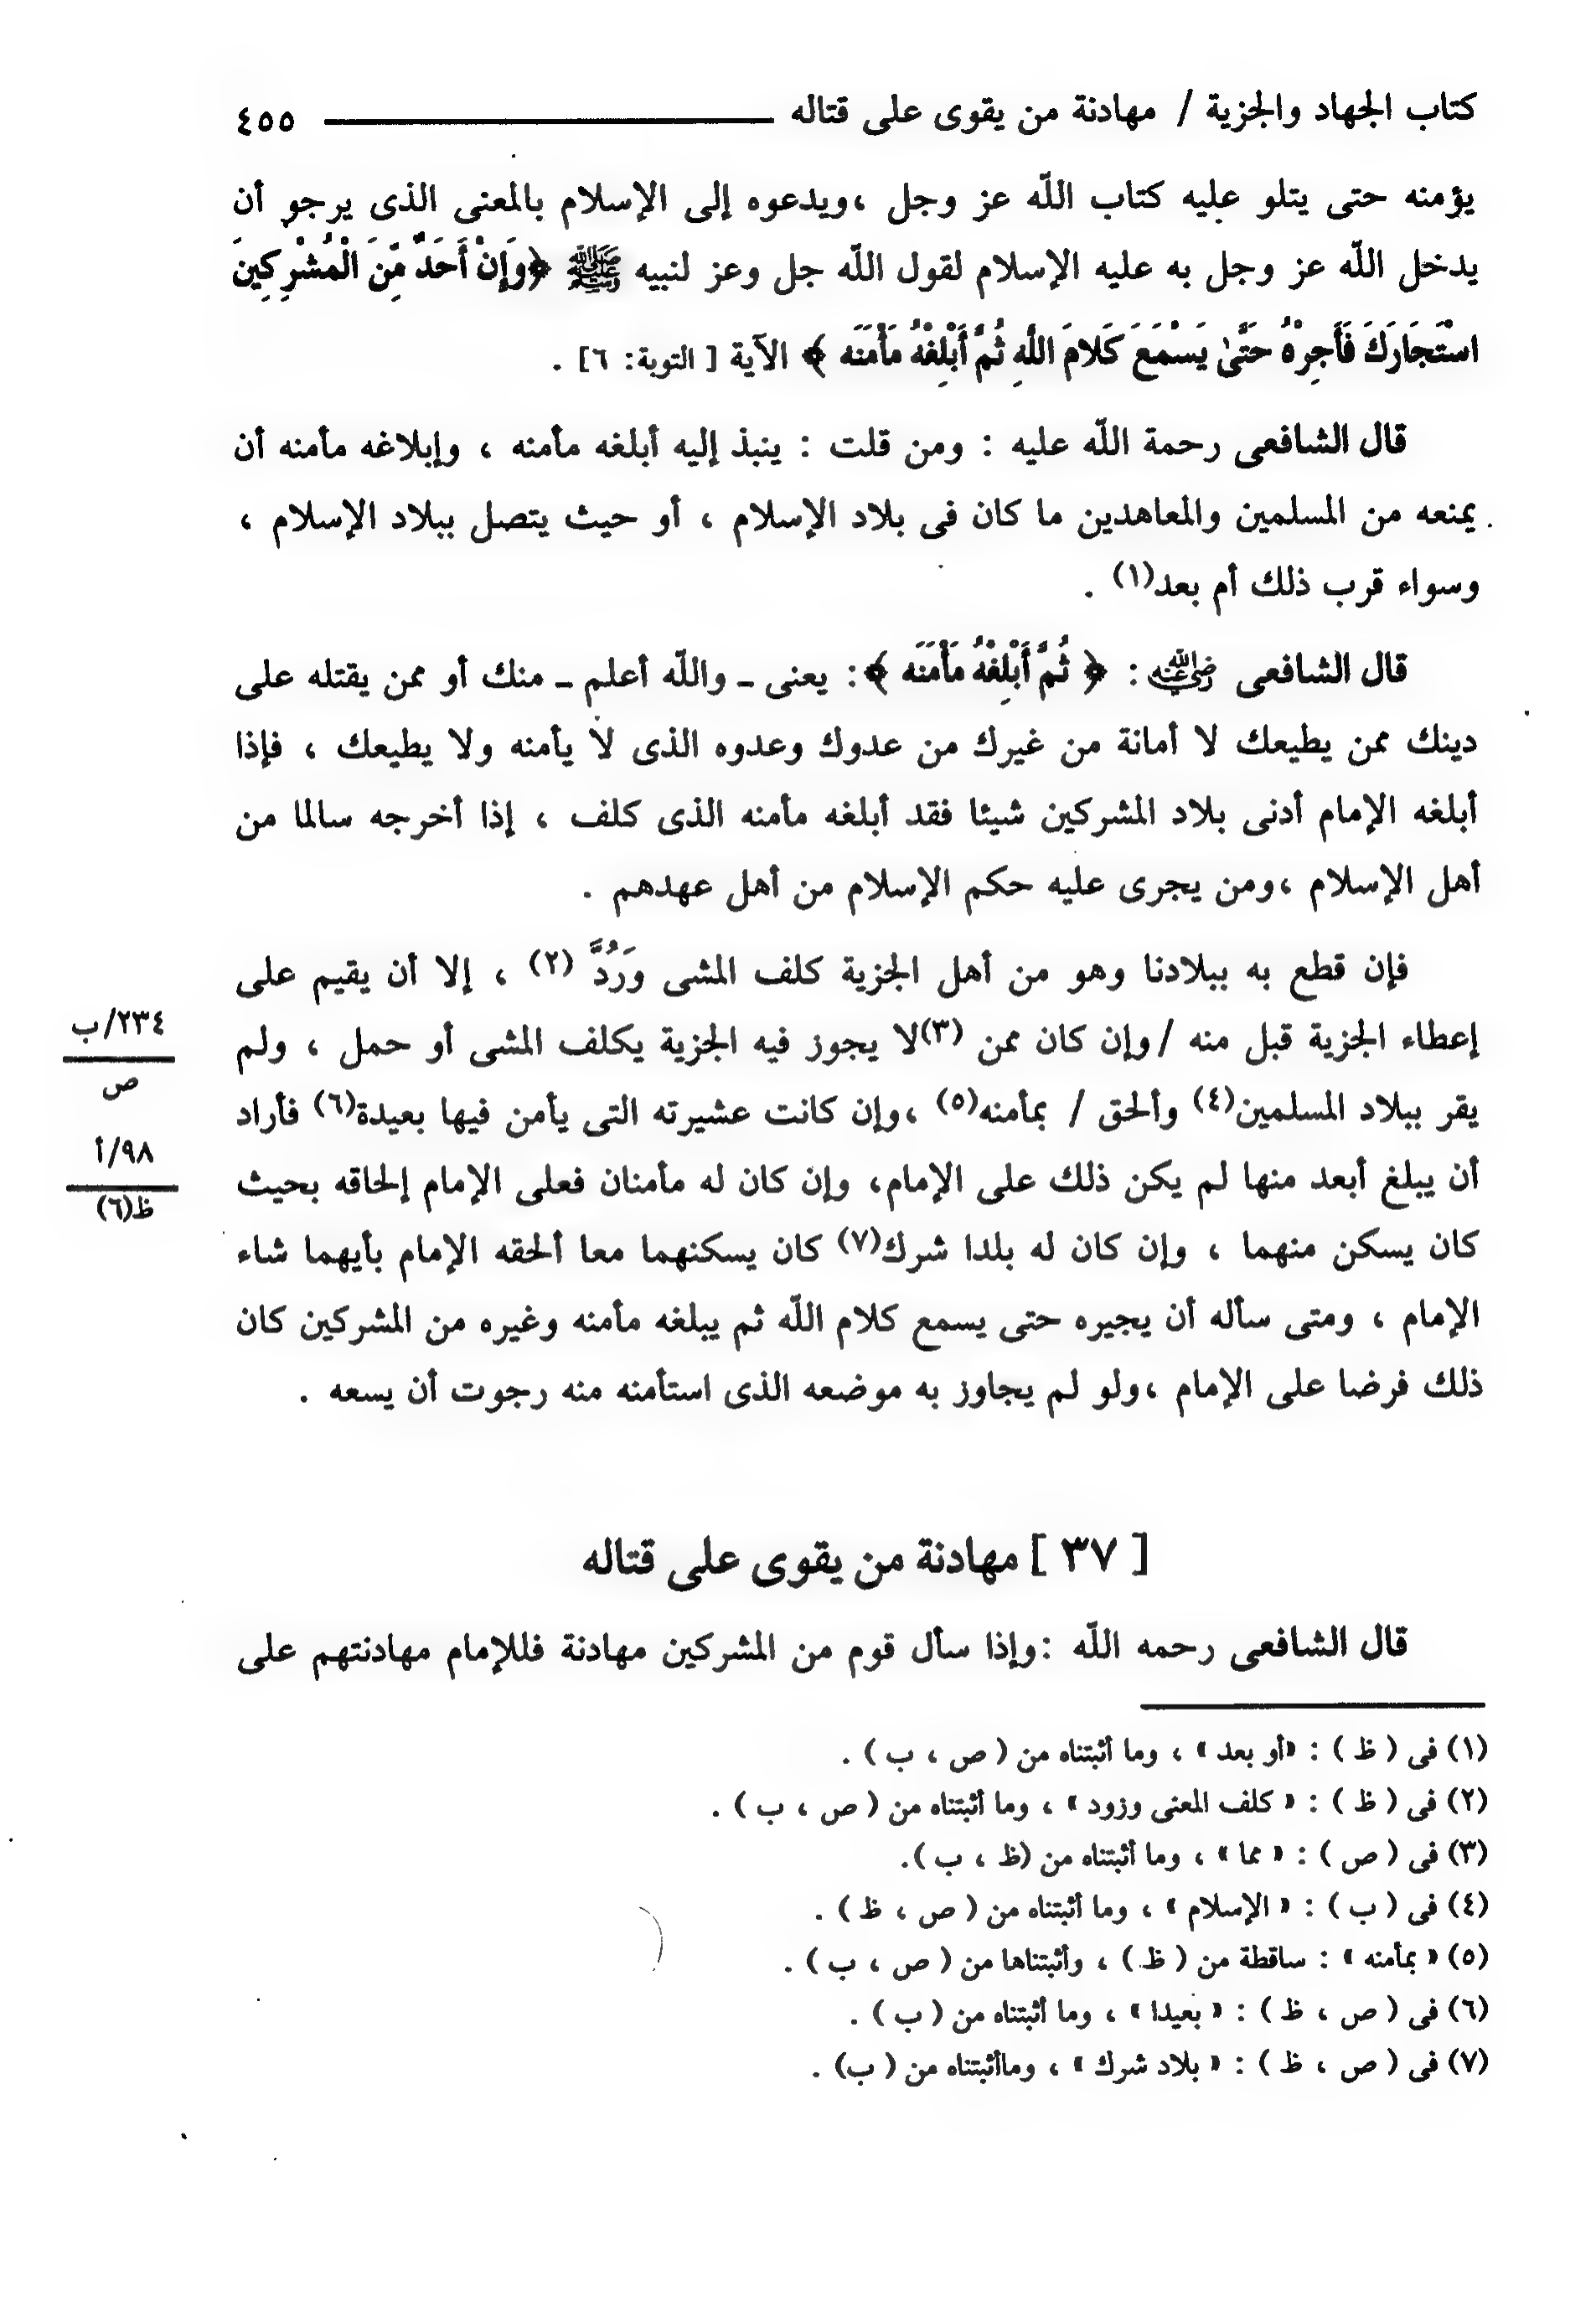 كتاب الجهاد والجزية / مهادنة من يقوى على قتاله ٤٥٥
يؤمنه حتى يتلو عليه كتاب اللّه عز وجل ،ويدعوه إلى الإسلام بالمعنى الذى يرجو أن
يدخل اللّه عز وجل به عليه الإسلام لقول اللّه جل وعز لنبيه ﷺ ﴿وَإِنْ أَحَدٌ مِّنَ الْمُشْرِكِينَ
اسْتَجَارَكَ فَأَجِرْهُ حَتَّىٰ يَسْمَعَ كَلامَ اللَّهِ ثُمَّ أَبْلِغْهُ مَأْمَنَه ﴾ الآية [ التوبة: ٦] .
قال الشافعى رحمة اللّه عليه : ومن قلت : ينبذ إليه أبلغه مأمنه ، وإبلاغه مأمنه أن
يمنعه من المسلمين والمعاهدين ما كان فى بلاد الإسلام ، أو حيث يتصل ببلاد الإسلام ،
وسواء قرب ذلك أم بعد(١) .
قال الشافعى رضي الله عنه : ﴿ ثُمَّ أَبْلِغْهُ مَأْمَنَه ﴾: يعنى ـ واللّه أعلم ـ منك أو ممن يقتله على
دينك ممن يطيعك لا أمانة من غيرك من عدوك وعدوه الذى لا يأمنه ولا يطيعك ، فإذا
أبلغه الإمام أدنى بلاد المشركين شيئا فقد أبلغه مأمنه الذى كلف ، إذا أخرجه سالما من
أهل الإسلام ،ومن يجرى عليه حكم الإسلام من أهل عهدهم .
فإن قطع به ببلادنا وهو من أهل الجزية كلف المشى وَرُدَّ (٢) ، إلا أن يقيم على
إعطاء الجزية قبل منه /وإن كان ممن (٣)لا يجوز فيه الجزية يكلف المشى أو حمل ، ولم
٢٣٤/ب
ص
يقر ببلاد المسلمين(٤) وألحق / بمأمنه(٥) ،وإن كانت عشيرته التى يأمن فيها بعيدة(٦) فأراد
٩٨/أ
ظ(٦)
أن يبلغ أبعد منها لم يكن ذلك على الإمام، وإن كان له مأمنان فعلى الإمام إلحاقه بحيث
كان يسكن منهما ، وإن كان له بلدا شرك(٧) كان يسكنهما معا ألحقه الإمام بأيهما شاء
الإمام ، ومتى سأله أن يجيره حتى يسمع كلام اللّه ثم يبلغه مأمنه وغيره من المشركين كان
ذلك فرضا على الإمام ،ولو لم يجاوز به موضعه الذى استأمنه منه رجوت أن يسعه .
[ ٣٧ ] مهادنة من يقوى على قتاله
قال الشافعى رحمه اللّه :وإذا سأل قوم من المشركين مهادنة فللإمام مهادنتهم على
(١) فى ( ظ ) : «أو بعد » ، وما أثبتناه من ( ص ، ب ) .
(٢) فى ( ظ ) : « كلف المعنى وزود » ، وما أثبتناه من ( ص ، ب ) .
(٣) فى ( ص ) : « مما » ، وما أثبتناه من (ظ ، ب ).
(٤) فى ( ب ) : « الإسلام » ، وما أثبتناه من ( ص ، ظ ) .
(٥) « بمأمنه » : ساقطة من ( ظ ) ، وأثبتناها من ( ص ، ب ) .
(٦) فى ( ص ، ظ ) : « بعيدا » ، وما أثبتناه من ( ب ) .
(٧) فى ( ص ، ظ ) : « بلاد شرك » ، وماأثبتناه من ( ب) .